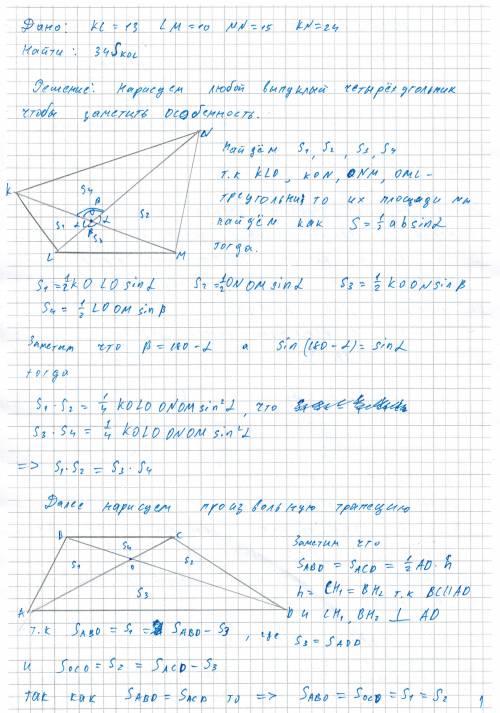 Дано: KL=13 LM=10 MN=15 KN=24
Найти: 34S KOL
Решение: Нарисуем любой выпуклый четырёхугольник
чтобы заметить особенность.
N
K
S4
β
O
S1 α α S2
β S3
L
M
Найдём S1, S2, S3, S4
т.к KLO, KON, ONM, OML -
треугольники то их площади мы
найдём как S=½absinα
тогда.
S1=½KO LO sinα S2=½ON OM sinα S3=½KO ON sinβ
S4=½LO OM sinβ
Заметим что β=180-α а sin(180-α)=sinα
тогда
S1·S2=¼ KO LO ON OM sin²α, что
S3·S4=¼ KO LO ON OM sin²α
=> S1·S2=S3·S4
Далее нарисуем произвольную трапецию
B
C
S4
S1 O S2
S3
A
D
Заметим что
S ABD = S ACD = ½ AD·h
h= CH1 = BH2 т.к BC||AD
и CH1, BH2 ⊥ AD
т.к S ABO = S1 = S ABD - S3, где S3 = S AOD
и S OCD = S2 = S ACD - S3
так как S ABD = S ACD то => S ABO = S OCD = S1 = S2
1